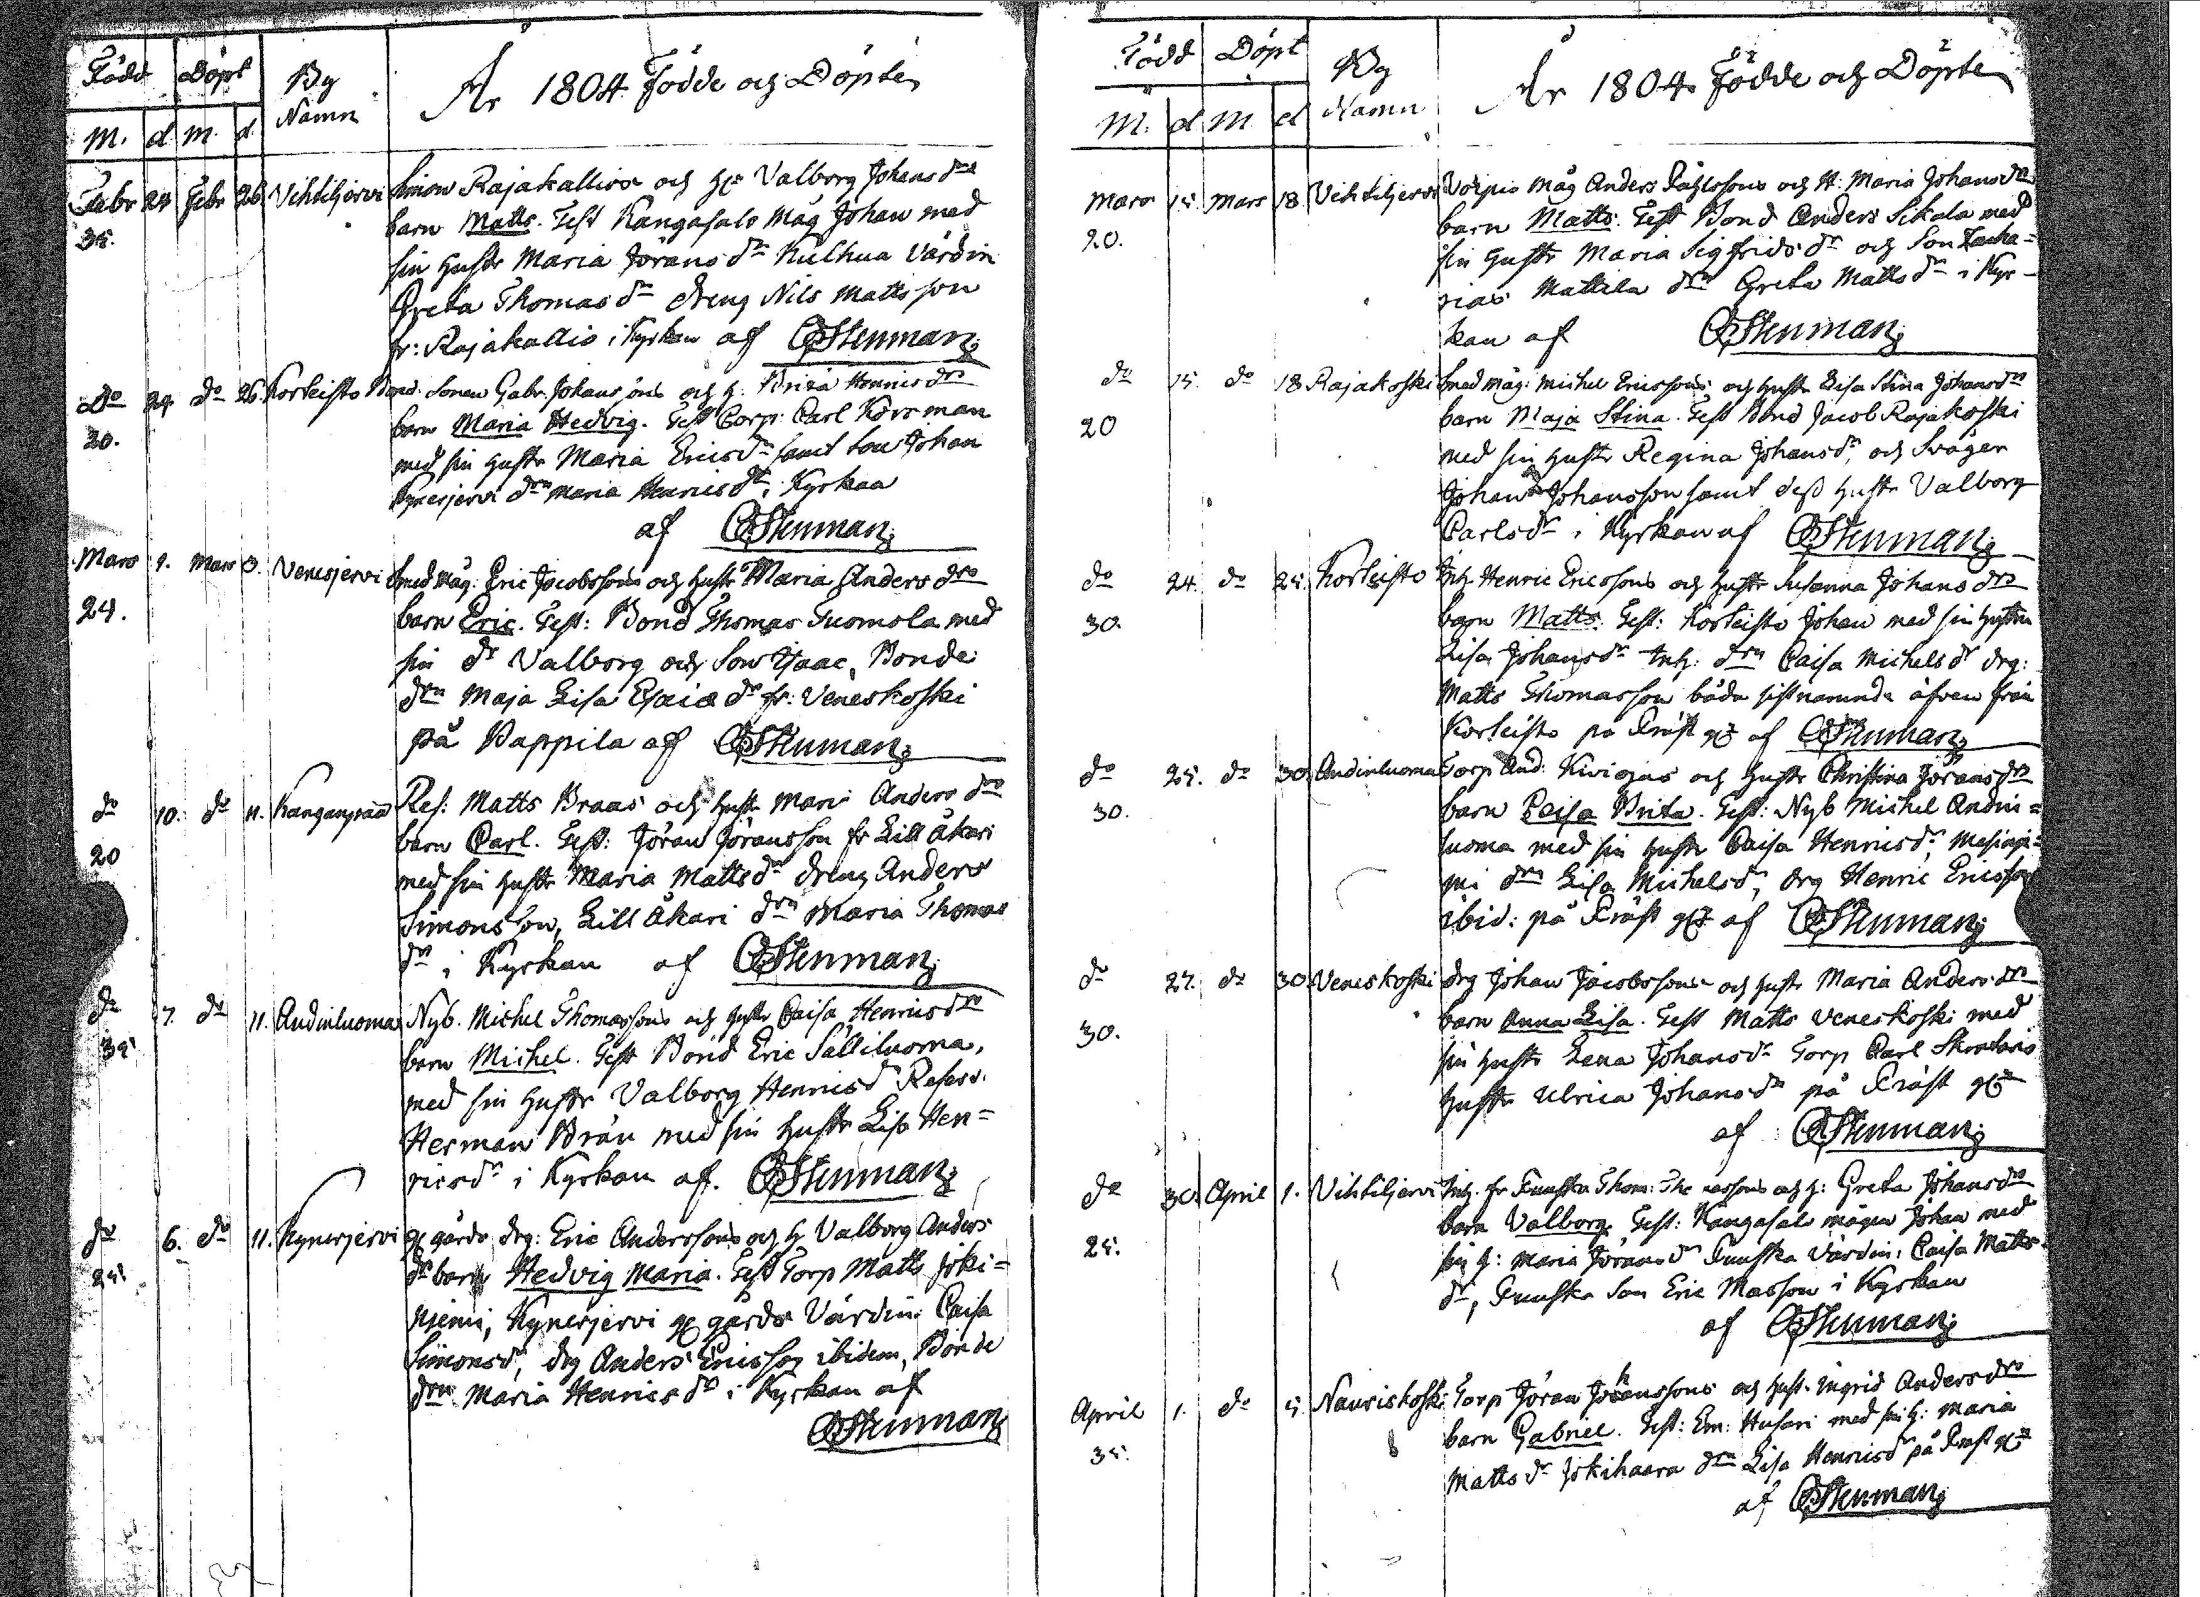 Född Döpt By Namn År 1804 Födde och Döpte
M. d. M. d.
Febr 24 Febr 26 Vihteljervi Simon Rajakallios och h: Valborg Johans drs
35. barn Matts. Test Kangasalo Måg Johan med
sin hustr Maria Jörans dr Kulhua Värdin
Greta Thomas dr dreng Nils Mattsson
fr: Rajakallio i Kyrkan af CGStenman
Do 24 do 26. Korteisto Bond. Sonen Gabr. Johanssons och h: Brita Henricsdrs
20. barn Maria Hedvig. Test Corp: Carl Korsman
med sin hustr Maria Ericsdr samt Son Johan
Kynesjervi drn Maria Henricsdr i Kyrkan
af CGStenman
Mars 1. Mars 3. Venesjervi Smed Måg. Eric Jacobssons och hustr Maria Anders drs
24. barn Eric. Test: Bond Thomas Tuomola med
sin dr Valborg och Son Isaac, Bonde
drn Maja Lisa Esaiæ dr fr: Veneskoski
på Pappila af CGStenman
do 10. do 11. Kanganpää Ref: Matts Braas och hustr Maria Anders drs
20 barn Carl. Test: Jöran Jöransson fr Lill Äkäri
med sin hustr Maria Mattsdr dreng Anders
Simonsson, Lill Äkari drn Maria Thomas
dr i Kyrkan af CGStenman
do 7. do 11. Andinluoma Nyb. Michel Thomassons och hustr Caisa Henricsdrs
35 barn Michel. Test Bond Eric Sälliluoma,
med sin hustr Valborg Henricsdr Refers.
Herman Brån med sin hustr Lisa Hen=
ricsdr i Kyrkan af. CGStenman
do 6. do 11. Kynesjervi gårds drg: Eric Anderssons och h Valborg Anders
25. dr barn Hedvig Maria. Test Torp Matts Joki=
niemi, Kynesjervi gårds Värdin: Caisa
Simonsdr, drg Anders Ericsson ibidem, Bonde
drn Maria Henricsdr i Kyrkan af
CGStenman
Född Döpt By Namn År 1804 Födde och Döpte
M. d M. d
Mars 15. Mars 18 Vihteljervi Vörpio måg Anders Påhlssons och H: Maria Johansdrs
20. barn Matts. Test Bond Anders Sikala med
sin hustr Maria Sigfridsdr och Son Zacha=
rias Mattila drn Greta Mattsdr i Kyr-
kan af CGStenman
do 15. do 18 Rajakoski Smed Måg: Michel Ericssons och hustr Lisa Stina Johansdrs
20 barn Maja Stina. Test Bond Jacob Rajakoski
med sin hustr Regina Johansdr, och Svåger
Johan Johansson samt dess hustr Valborg
Carlsdr i Kyrkan af CGStenman
do 24. do 25. Korteisto Inh: Henric Ericssons och hustr Susanna Johans drs
30. barn Matts. Test: Korteisto Johan med sin hustru
Lisa Johansdr Inh: drn Caisa Michelsdr drg:
Matts Thomasson båda sistnamnde äfven från
Korteisto på Präst af CGStenman
do 25. do 30. Andinluoma Torp And: Kiviojas och hustr Christina Jöransdrs
30. barn Caisa Brita. Test: Nyb Michel Andin=
luoma med sin hustr Caisa Henricsdr, Mesinie=
mi drn Lisa Michelsdr, drg Henric Ericsson
ibid: på Präst af CGStenman
do 27. do 30. Veneskoski drg Johan Jacobssons och hustr Maria Anders drs
30. barn Anna Lisa. Test Matts Veneskoski med
sin hustr Lena Johansdr Torp Carl
hustr Ulrica Johansdr på Präst
af CGStenman
do 30. April 1. Vihteljervi Inh. fr Funska Thom: Thomassons och h: Greta Johansdrs
25. barn Valborg. Test: Kangasalo mågen Johan med
sin h: Maria Jöransdr Funska Värdin: Caisa Matts
dr, Funska Son Eric Masson i Kyrkan
af CGStenman
April 1. do 5. Nauriskoski Torp Jöran Johanssons och hust. Ingrid Andersdrs
35. barn Gabriel. Test: Em: Husari med sin h: Maria
Mattsdr Jokihaara drn Lisa Henricsd på Präst
af CGStenman